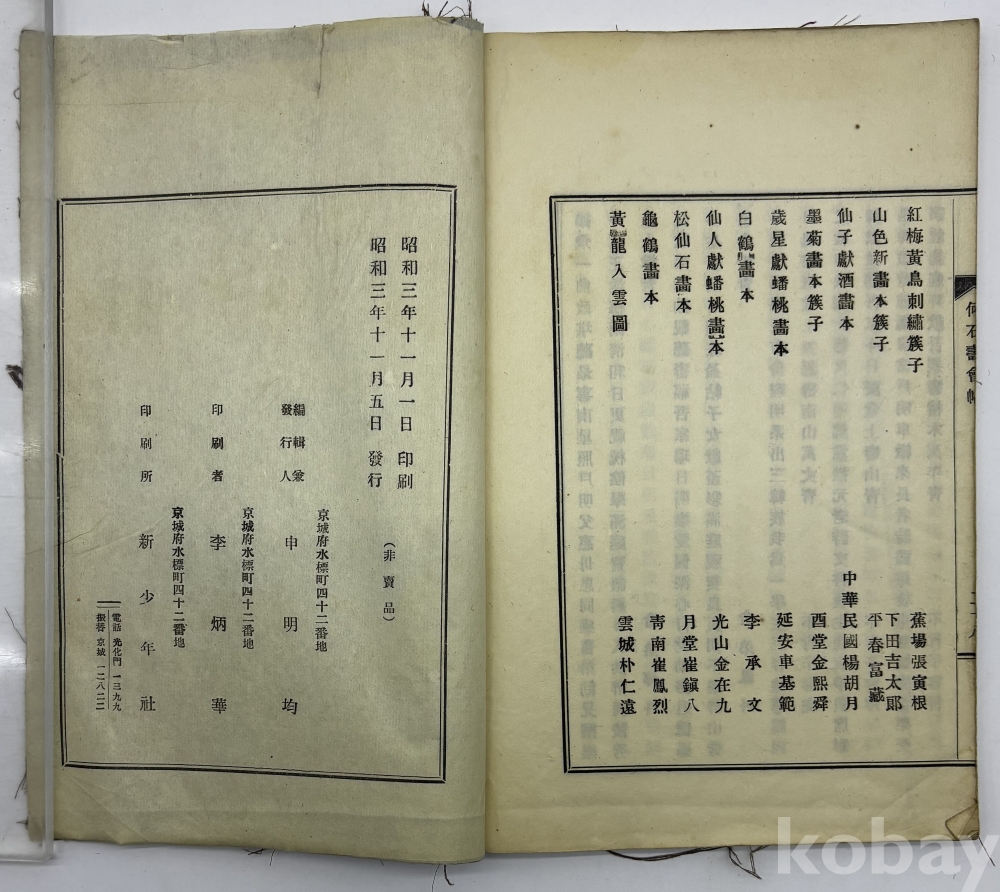 紅梅黃鳥刺繡簇子 蕉場張寅根
山色新畫本簇子 下田吉太郞
平春富藏
仙子獻酒畫本 中華民國楊胡月
墨菊畫本簇子 酉堂金熙舜
歲星獻蟠桃畫本 延安車基範
白鶴畫本 李承文
仙人獻蟠桃畫本 光山金在九
松仙石畫本 月堂崔鎭八
龜鶴畫本 靑南崔鳳烈
黃龍入雲圖 雲城朴仁遠
昭和三年十一月一日 印刷
昭和三年十一月五日 發行
(非賣品)
京城府水標町四十二番地
編輯兼發行人 申明均
京城府水標町四十二番地
印刷者 李炳華
印刷所 新少年社
電話 光化門 一三九九
振替 京城 一二八二二
kobay